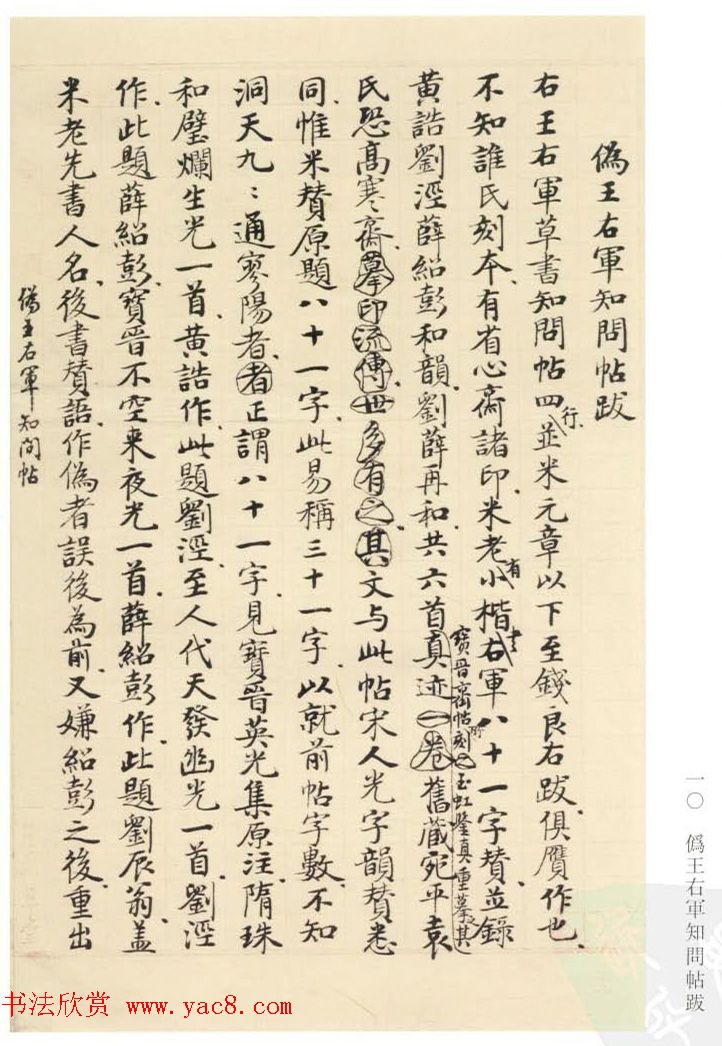 偽王右軍知問帖跋
右王右軍草書知問帖四行並米元章以下至錢良右跋俱贋作也
不知誰氏刻本有省心齋諸印米老有小楷書右軍八十一字賛並錄
黃誥劉涇薛紹彭和韻劉薛再和共六首真迹一卷舊藏宛平袁
寶晉齋帖刻附玉虹鑒真重摹其
氏恐高寒齋摹印流傳世多有之其文与此帖宋人光字韻賛悉
同惟米賛原題八十一字此易稱三十一字以就前帖字數不知
洞天九〻通寥陽者者正謂八十一字見寶晉英光集原注隋珠
和璧爛生光一首黃誥作此題劉涇至人代天發幽光一首劉涇
作此題薛紹彭寶晉不空来夜光一首薛紹彭作此題劉辰翁盖
米老先書人名後書賛語作偽者誤後為前又嫌紹彭之後重出
偽王右軍知問帖
一〇 偽王右軍知問帖跋
书法欣赏 www.yac8.com